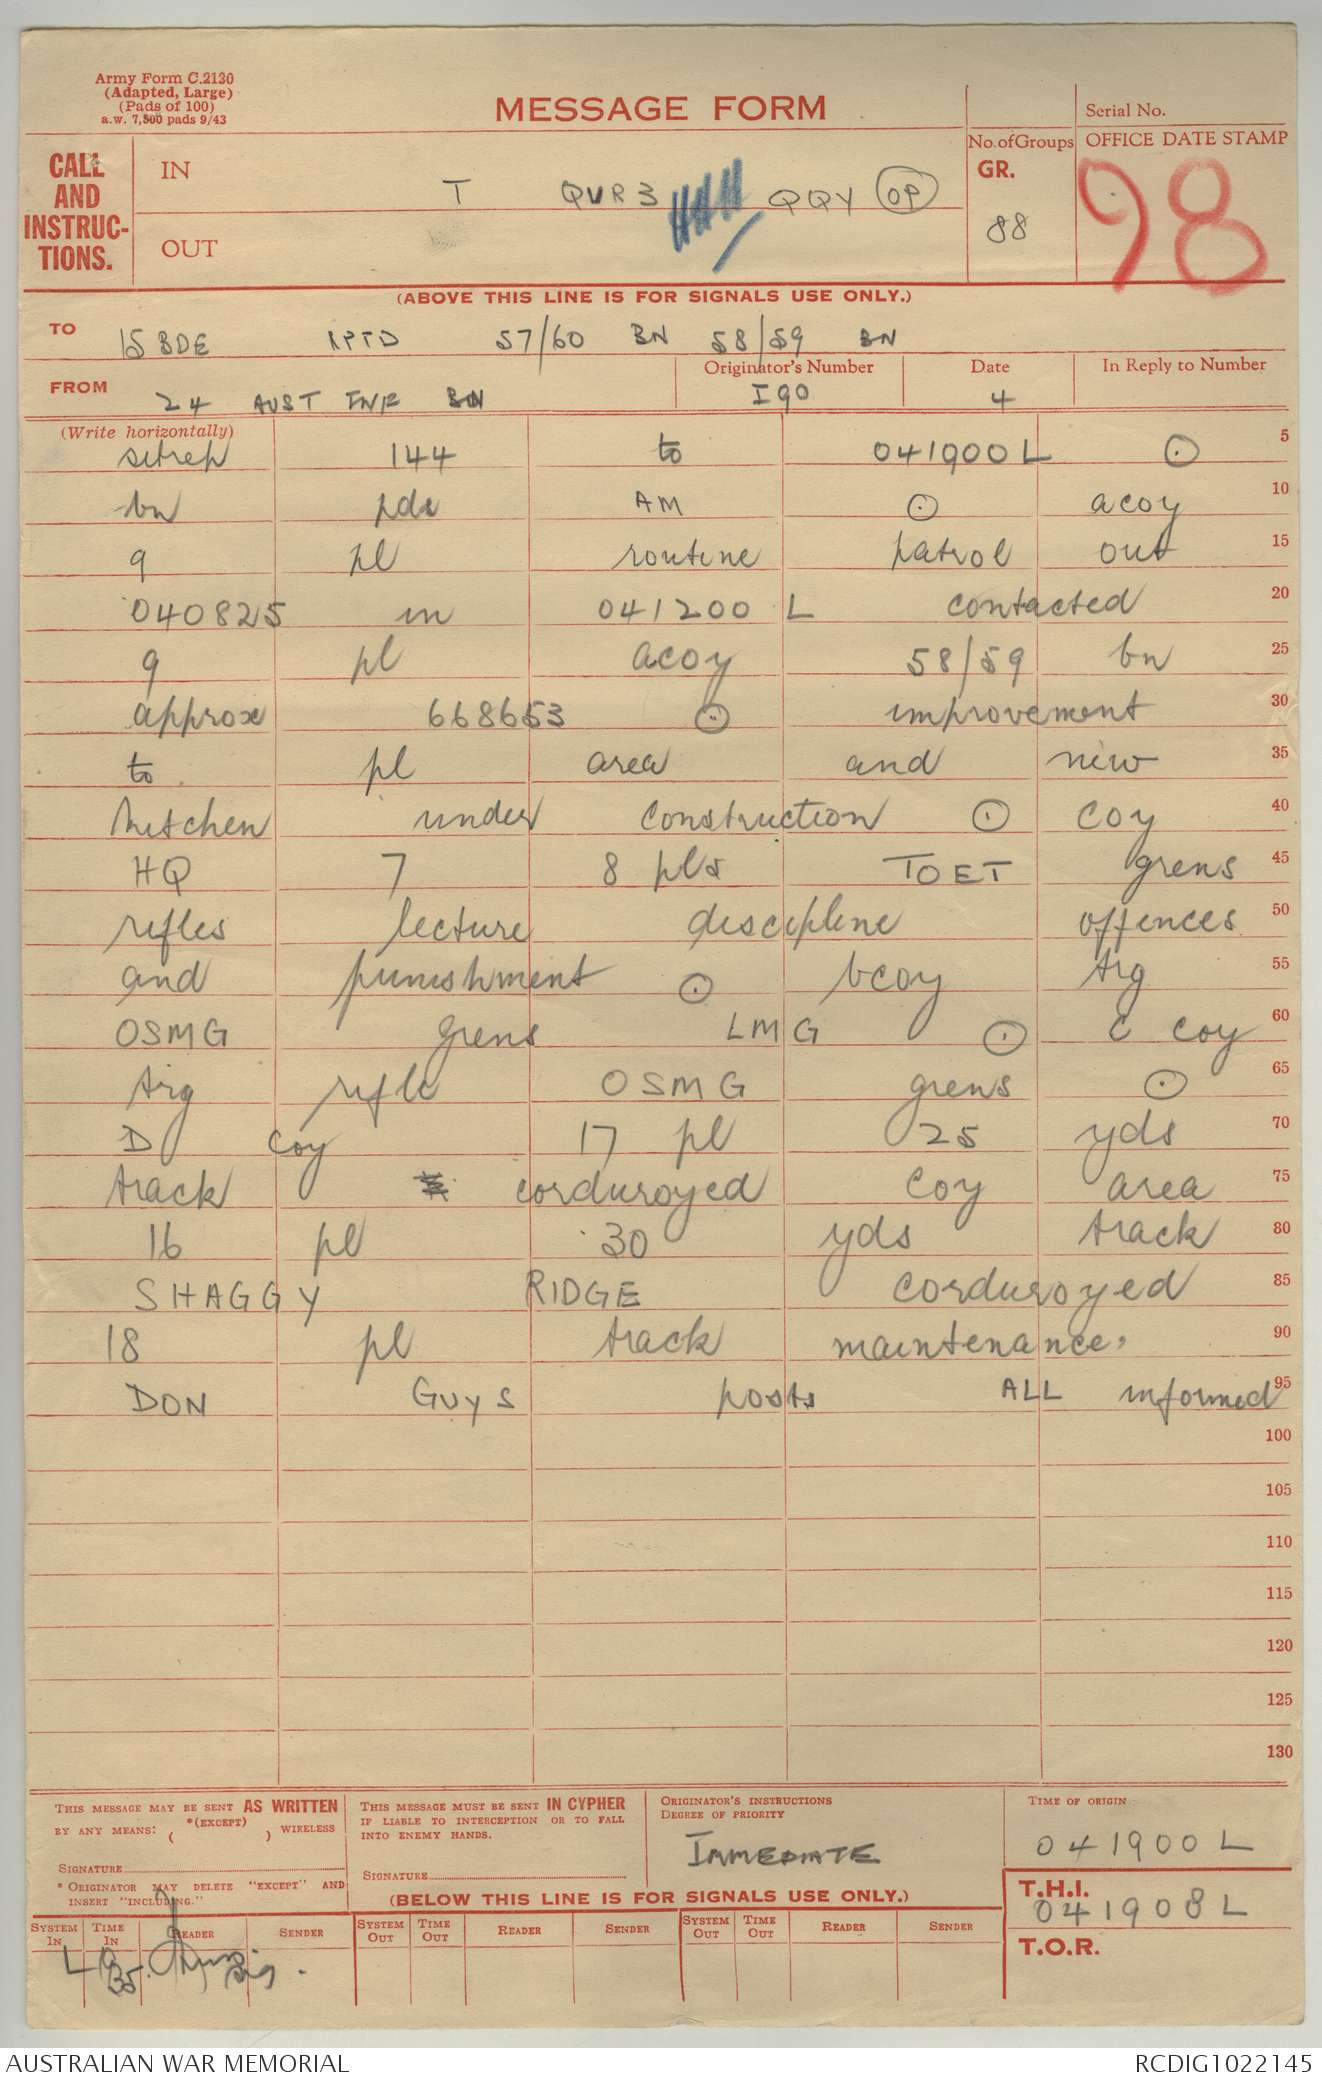 Army Form C.2130
(Adapted, Large)
(Pads of 100)
a.w. 7,500 pads 9/43
MESSAGE FORM
Serial No.
CALL AND INSTRUCTIONS.
IN
OUT
T QVR3 QQY OP
No. of Groups
GR.
88
OFFICE DATE STAMP
98
(ABOVE THIS LINE IS FOR SIGNALS USE ONLY.)
TO 15 BDE RPTD 57/60 BN 58/59 BN
FROM 24 AUST INF BN
Originator's Number I90
Date 4
In Reply to Number
(Write horizontally)
sitrep 144 to 041900 L ⊙ 5
bn pde AM ⊙ acoy 10
9 pl routine patrol out 15
040825 in 041200 L contacted 20
9 pl acoy 58/59 bn 25
approx 668653 ⊙ improvement 30
to pl area and new 35
kitchen under construction ⊙ coy 40
HQ 7 8 pls TOET grens 45
rifles lecture discipline offences 50
and punishment ⊙ bcoy trg 55
OSMG grens LMG ⊙ C coy 60
trg rifle OSMG grens ⊙ 65
D coy 17 pl 25 yds 70
track corduroyed coy area 75
16 pl 30 yds track 80
SHAGGY RIDGE corduroyed 85
18 pl track maintenance 90
DON GUYS posts ALL informed 95
100
105
110
115
120
125
130
THIS MESSAGE MAY BE SENT AS WRITTEN
BY ANY MEANS: *(EXCEPT) ( ) WIRELESS
SIGNATURE
* ORIGINATOR MAY DELETE "EXCEPT" AND
INSERT "INCLUDING."
THIS MESSAGE MUST BE SENT IN CYPHER
IF LIABLE TO INTERCEPTION OR TO FALL
INTO ENEMY HANDS.
SIGNATURE
ORIGINATOR'S INSTRUCTIONS
DEGREE OF PRIORITY
IMMEDIATE
TIME OF ORIGIN
041900 L
(BELOW THIS LINE IS FOR SIGNALS USE ONLY.)
T.H.I.
041908 L
T.O.R.
SYSTEM IN TIME IN READER SENDER SYSTEM OUT TIME OUT READER SENDER SYSTEM OUT TIME OUT READER SENDER
AUSTRALIAN WAR MEMORIAL
RCDIG1022145